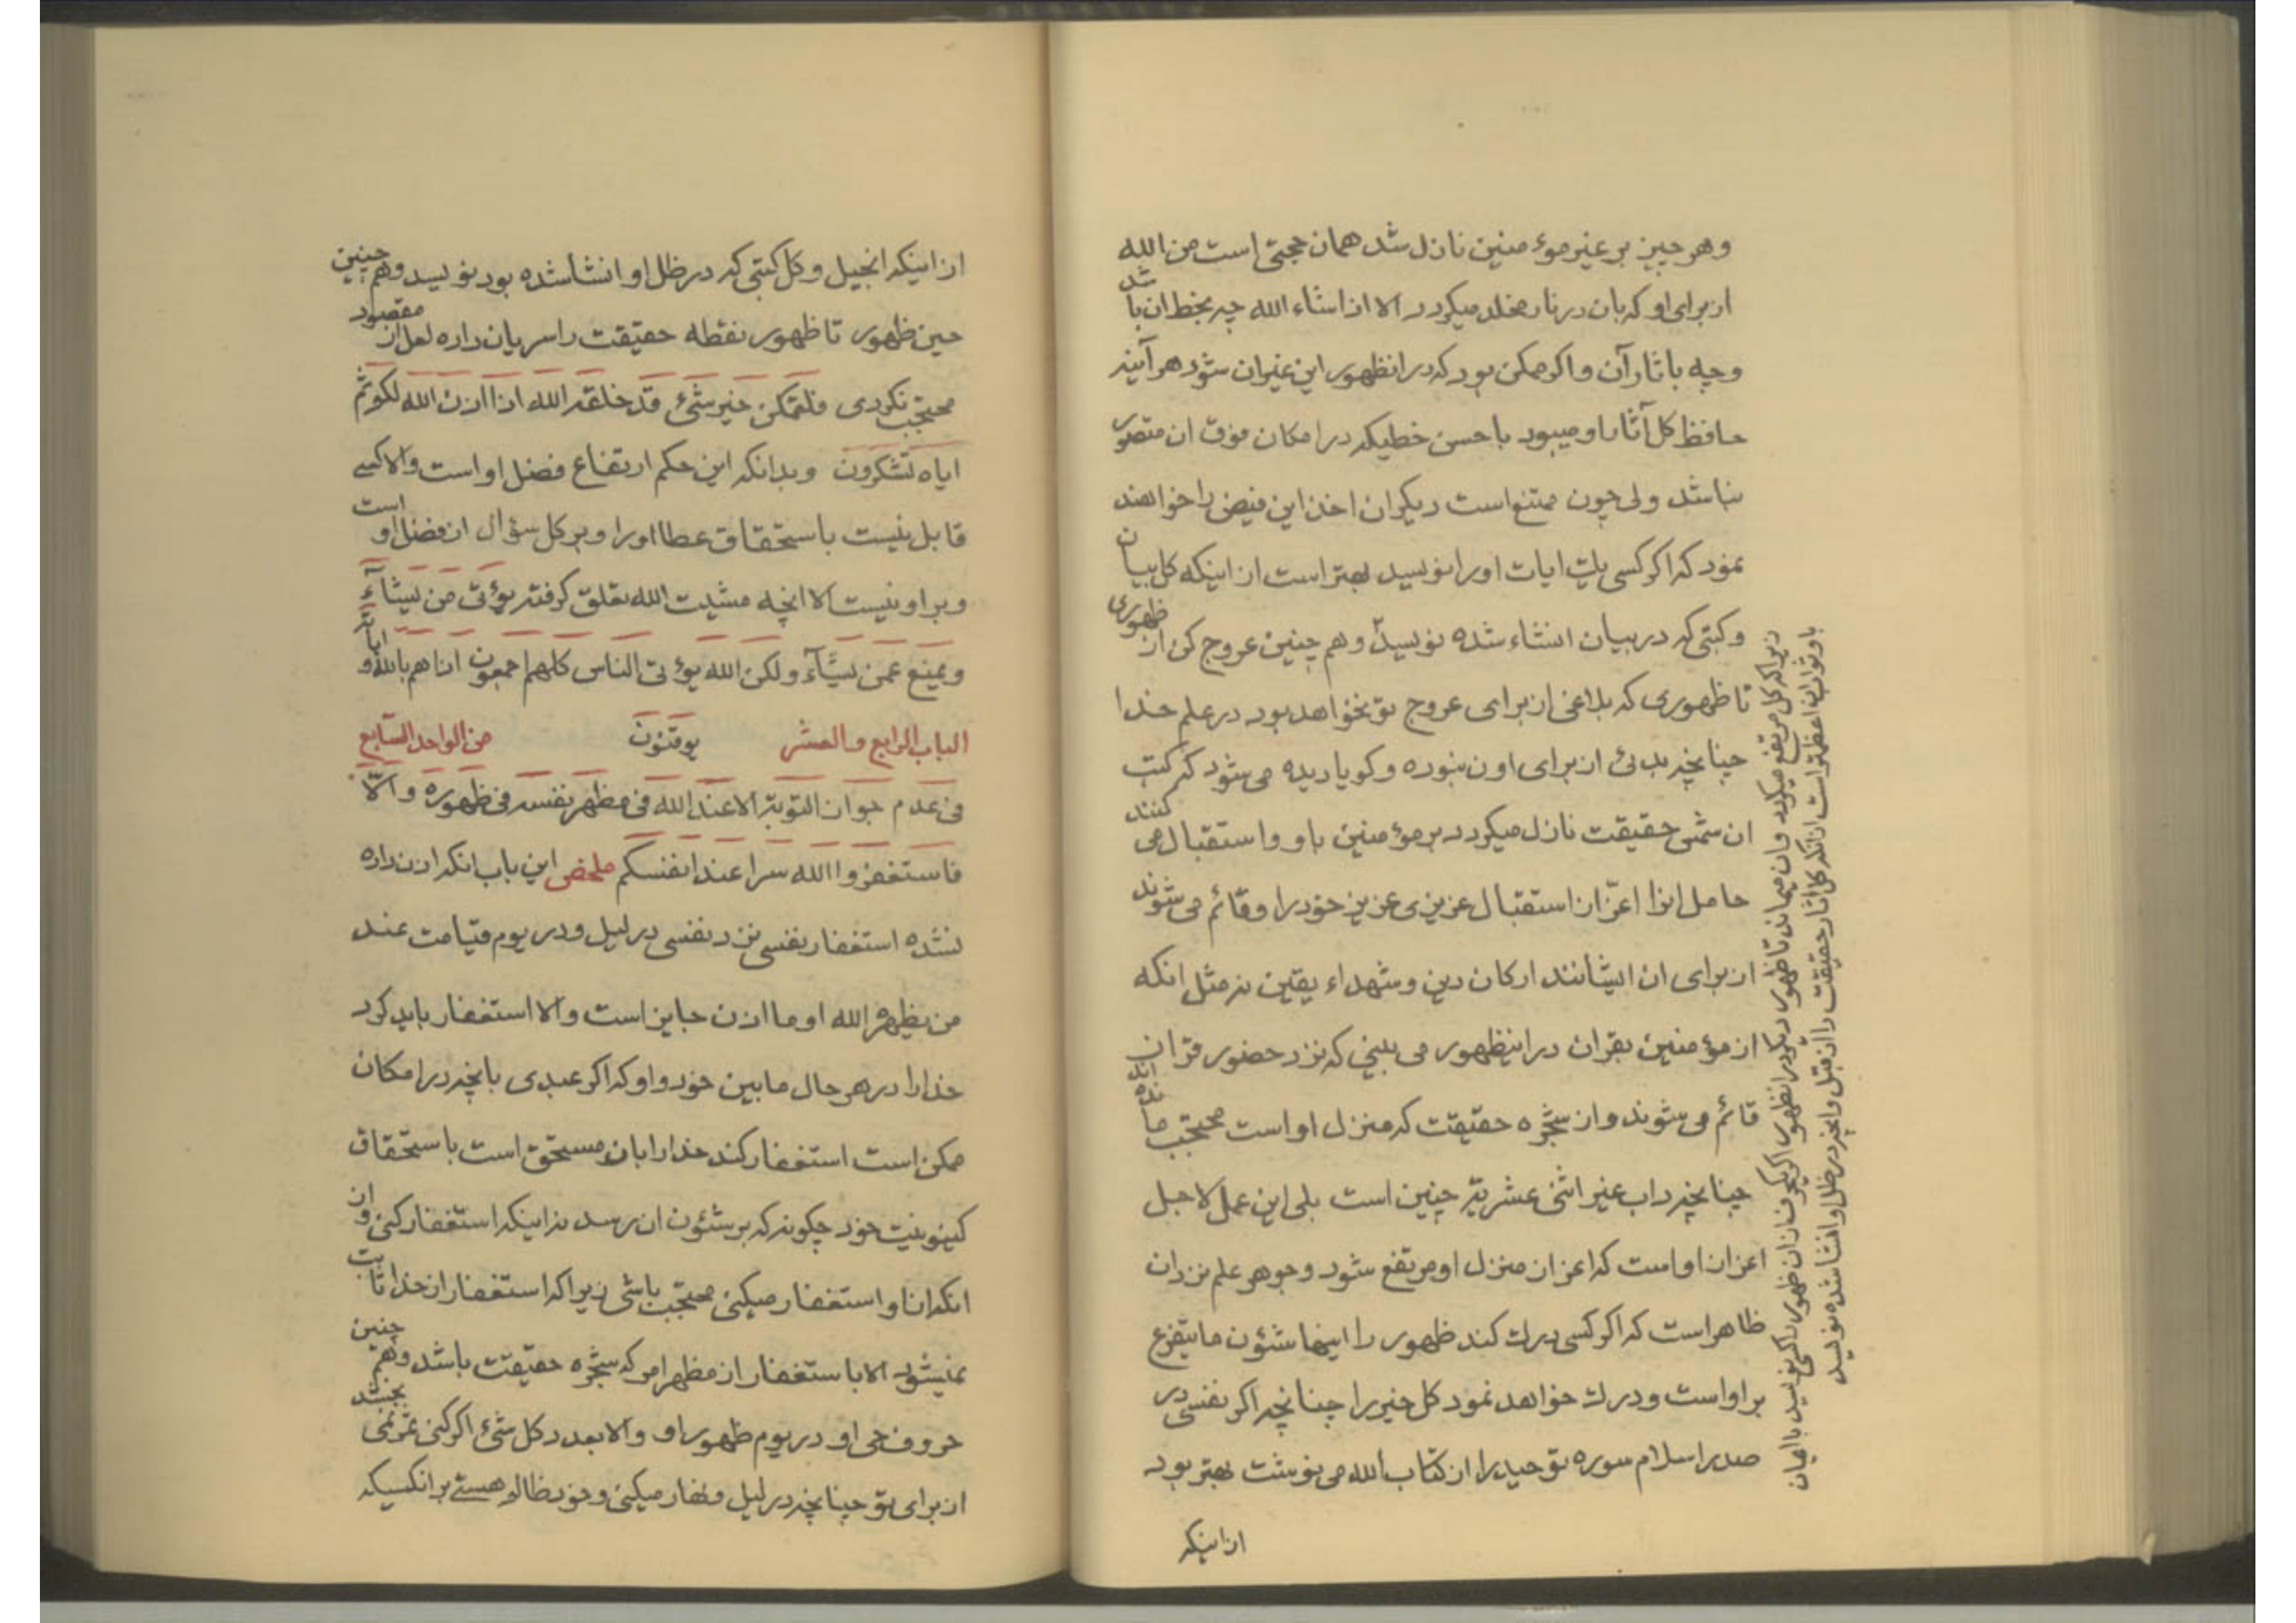 وهر چیز بر غیر مؤمنین نازل شد همان حجتی است من الله
از برای او که بان در نار مخلد میکردد الا اذا شاء الله چه بخط ان باشد
وچه باثار آن واکر ممکن بود که در انظهور این غیر ان شود هر آینه
حافظ کل آثار او میبود باحسن خطیکه در امکان فوق ان متصور
نباشد ولی چون ممتنع است دیکران اخذ این فیض را خواهند
نمود که اکر کسی یك ایات اورا نویسد بهتر است از اینکه کل بیان
وکتبی که در بیان انشاء شده نویسد وهم چنین عروج کن از ظهوری
تا ظهوری که بلاغی از برای عروج تو نخواهد بود در علم خدا
چنانچه بدئی از برای او ن نبوده وکویا دیده می شود که کتب
ان شمس حقیقت نازل میکردد بر مؤمنین باو واستقبال می کنند
حامل انرا اعز از استقبال عزیزی عزیز خود را وقائم می شوند
از برای ان ایشانند ارکان دین وشهداء یقین نه مثل انکه
از مؤمنین بقران در اینظهور می بینی که نزد حضور قران
قائم می شوند واز شجره حقیقت که منزل او است محتجب مانده اند
چنانچه داب غیر اثنی عشریه چنین است بلی این عمل لاجل
اعزاز او است که اعزاز منزل او مرتفع شود وجوهر علم نزد ان
ظاهر است که اکر کسی درك کند ظهور را اینها شئون ما یتفرع
بر او است ودرك خواهد نمود کل خیر را چنانچه اکر نفسی در
صدر اسلام سوره توحید را از کتاب الله می نوشت بهتر بود
از اینکه
زیرا که کل مرتفع میکردد وان میماند تا ظهور دیکر در انظهور اکر یکحرف از ان ظهور را کسی نویسد با ایمان
باو ثواب ان اعظم است از انکه کل اثار حقیقت را از قبل وانچه در ظل او انشا شده نویسد
از اینکه انجیل وکل کتبی که در ظل او انشا شده بود نویسد وهم چنین
حین ظهور تا ظهور نقطه حقیقت را سریان داده لعل از مقصود
محتجب نکردی فلتملکن خیر شئ قد خلقه الله اذا اذن الله لکم ثم
ایاه تشکرون وبدانکه این حکم ارتفاع فضل او است والا کسی
قابل نیست باستحقاق عطا او را وبر کل سؤال از فضل او است
وبر او نیست الا انچه مشیت الله تعلق کرفته یؤتی من یشاء
ویمنع عمن یشاء ولکن الله یؤتی الناس کلهم اجمعون اذا هم بالله وایاته
الباب الرابع والعشر یوقنون من الواحد السابع
فی عدم جواز التوبة الا عند الله فی مظهر نفسه فی ظهوره والا
فاستغفروا الله سرا عند انفسکم ملخص این باب انکه اذن داده
نشده استغفار نفسی نزد نفسی در لیل ودر یوم قیامت عند
من یظهره الله او ما اذن جایز است والا استغفار باید کرد
خدا را در هر حال ما بین خود واو که اکر عبدی بانچه در امکان
ممکن است استغفار کند خدا را بان مستحق است باستحقاق
کینونیت خود چکونه که بر شئون ان رسد نه اینکه استغفار کنی واز
انکه از او استغفار میکنی محتجب باشی زیرا که استغفار از خدا ثابت
نمیشود الا باستغفار از مظهر امر که شجره حقیقت باشد وهم چنین
حروف حی او در یوم ظهور او والا بعدد کل شئ اکر کنی ثمر نمی بخشد
از برای تو چنانچه در لیل ونهار میکنی وخود ظالم هستی بر انکسیکه